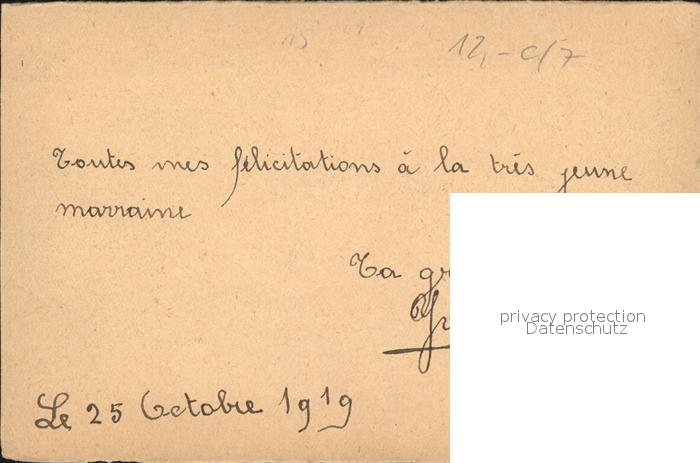 12,- c/7
Toutes mes félicitations à la très jeune
marraine
Ta
privacy protection
Datenschutz
Le 25 Octobre 1919